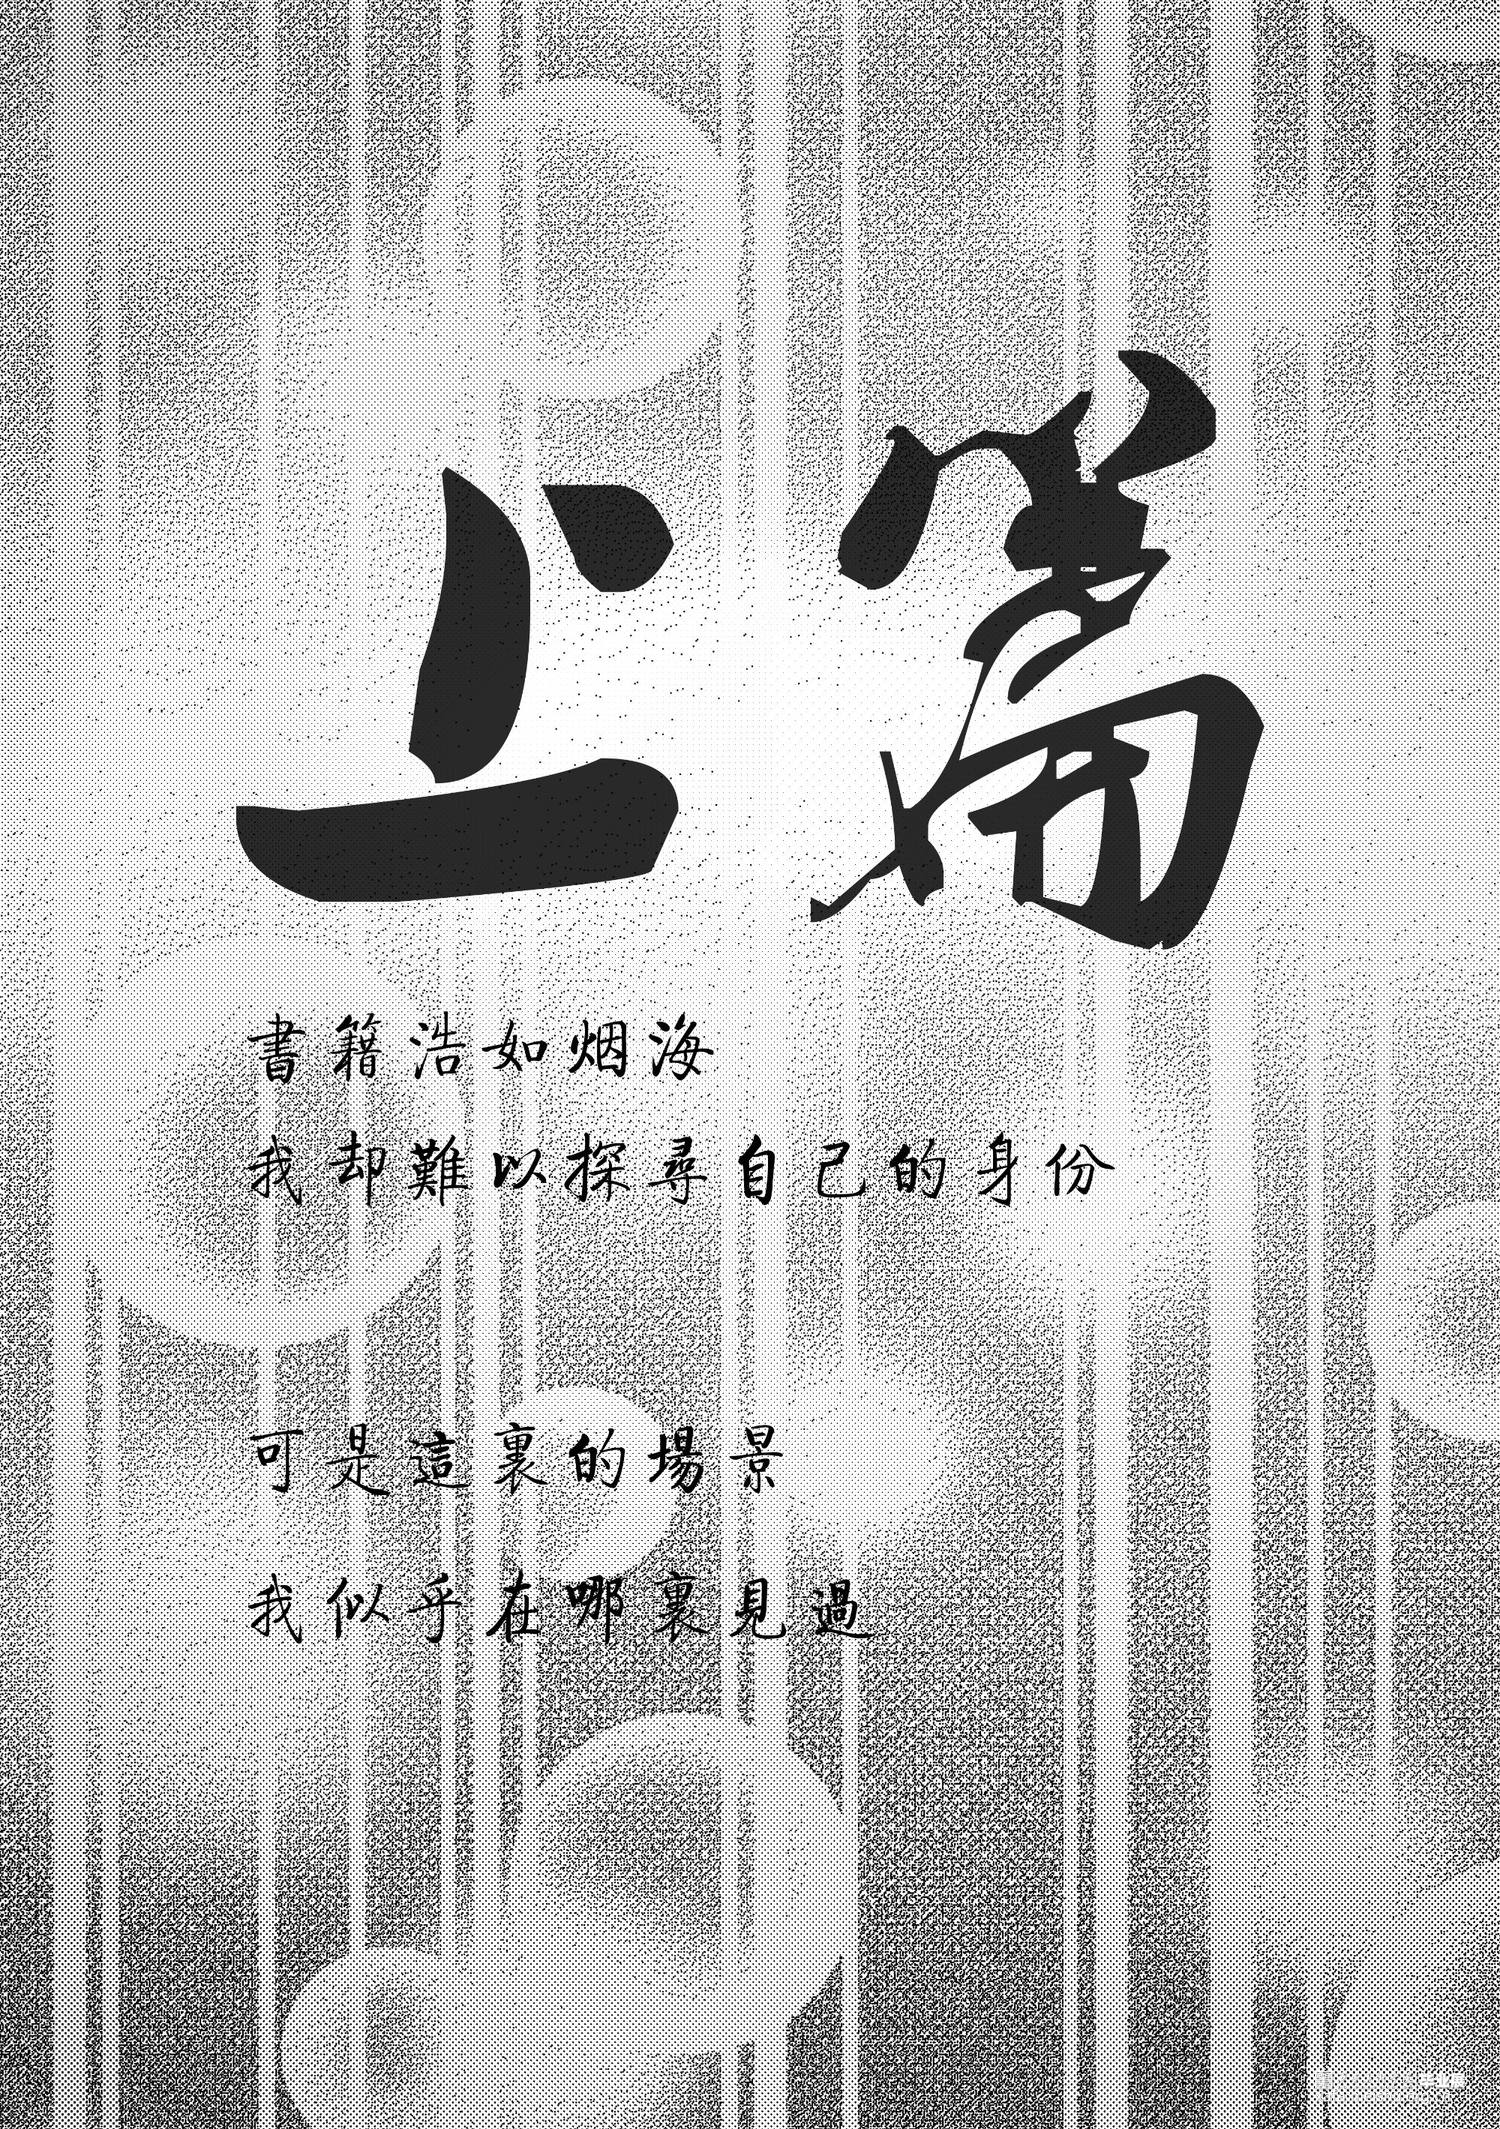 上篇
書籍浩如烟海
我却難以探尋自己的身份
可是這裏的場景
我似乎在哪裏見過